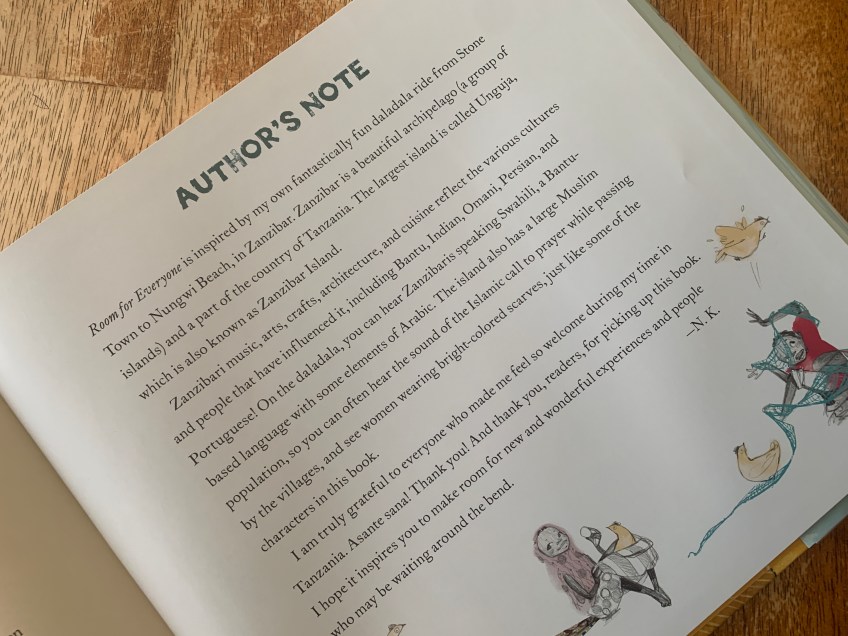 AUTHOR'S NOTE
Room for Everyone is inspired by my own fantastically fun daladala ride from Stone
Town to Nungwi Beach, in Zanzibar. Zanzibar is a beautiful archipelago (a group of
islands) and a part of the country of Tanzania. The largest island is called Unguja,
which is also known as Zanzibar Island.
Zanzibari music, arts, crafts, architecture, and cuisine reflect the various cultures
and people that have influenced it, including Bantu, Indian, Omani, Persian, and
Portuguese! On the daladala, you can hear Zanzibaris speaking Swahili, a Bantu-
based language with some elements of Arabic. The island also has a large Muslim
population, so you can often hear the sound of the Islamic call to prayer while passing
by the villages, and see women wearing bright-colored scarves, just like some of the
characters in this book.
I am truly grateful to everyone who made me feel so welcome during my time in
Tanzania. Asante sana! Thank you! And thank you, readers, for picking up this book.
I hope it inspires you to make room for new and wonderful experiences and people
who may be waiting around the bend.
–N. K.